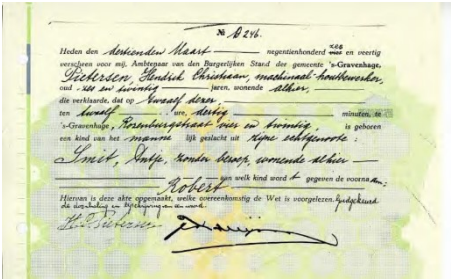 № B 246.
Heden den dertienden Maart negentienhonderd zes en veertig
verscheen voor mij, Ambtenaar van den Burgerlijken Stand der gemeente 's-Gravenhage,
Pietersen, Hendrik Christiaan, machinaal-houtbewerker,
oud zes en twintig jaren, wonende alhier,
die verklaarde, dat op twaalf dezer,
ten twaalf ure, dertig minuten, te
's-Gravenhage, Rozenburgstraat vier en twintig, is geboren
een kind van het manne lijk geslacht uit zijne echtgenoote:
Smit, Antje, zonder beroep, wonende alhier
aan welk kind word t gegeven de voornaam:
Robert
Hiervan is deze akte opgemaakt, welke overeenkomstig de Wet is voorgelezen. Goedgekeurd
de doorhaling en bijschrijving van een woord.
H. C. Pietersen